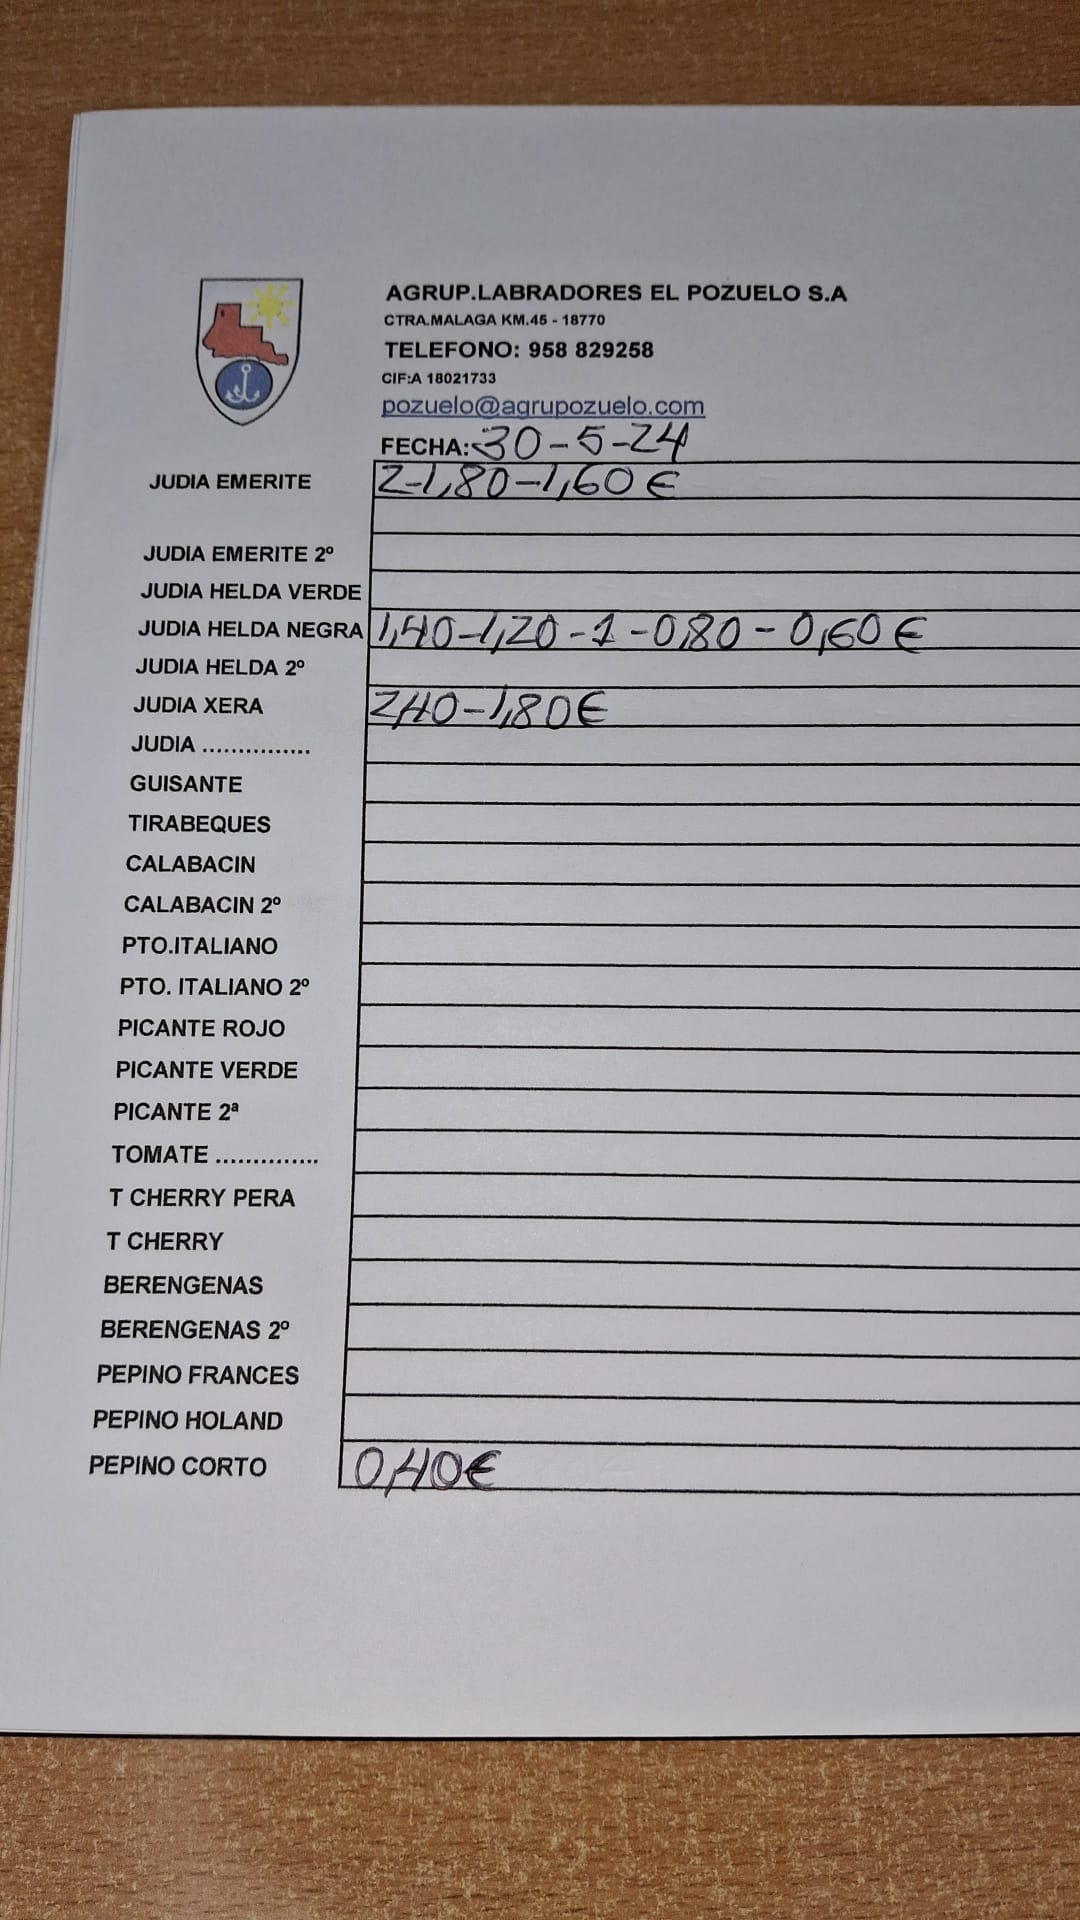 AGRUP.LABRADORES EL POZUELO S.A
CTRA.MALAGA KM.45 - 18770
TELEFONO: 958 829258
CIF:A 18021733
pozuelo@agrupozuelo.com
FECHA: 30-5-24
JUDIA EMERITE 2-1,80-1,60€
JUDIA EMERITE 2º
JUDIA HELDA VERDE
JUDIA HELDA NEGRA 1,40-1,20-1-0,80-0,60€
JUDIA HELDA 2º
JUDIA XERA 2,40-1,80€
JUDIA ...............
GUISANTE
TIRABEQUES
CALABACIN
CALABACIN 2º
PTO.ITALIANO
PTO. ITALIANO 2º
PICANTE ROJO
PICANTE VERDE
PICANTE 2ª
TOMATE ..............
T CHERRY PERA
T CHERRY
BERENGENAS
BERENGENAS 2º
PEPINO FRANCES
PEPINO HOLAND
PEPINO CORTO 0,40€